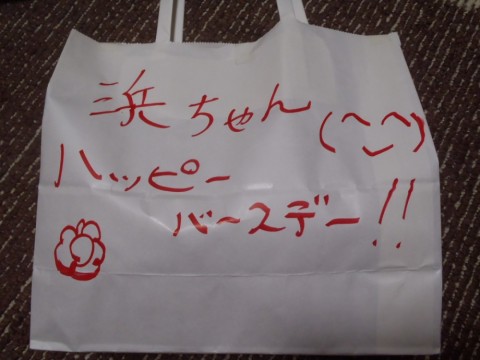 浜ちゃん(^‿^)
ハッピー
バースデー!!